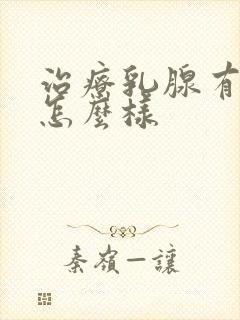 治療乳腺有
怎麼樣
秦嶺一讓